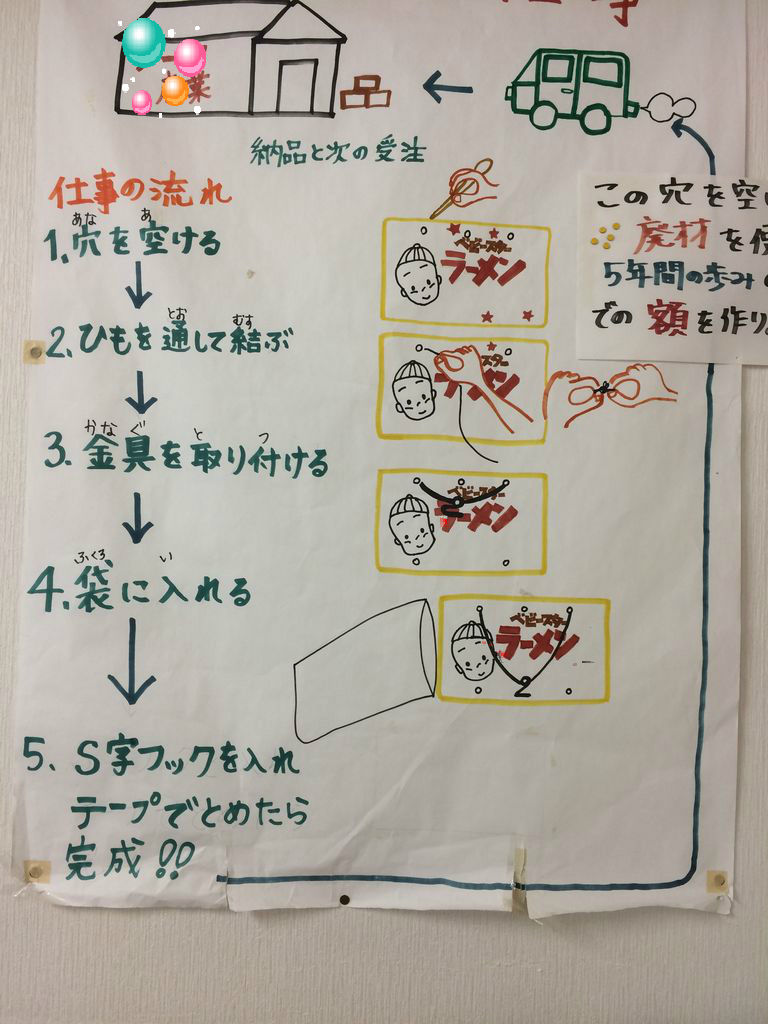 産業
納品と次の受注
仕事の流れ
あな あ
1.穴を空ける
とお むす
2.ひもを通して結ぶ
かな ぐ と つ
3.金具を取り付ける
ふくろ い
4.袋に入れる
5.S字フックを入れ
テープでとめたら
完成!!
ベビースター
ラーメン
スター
ベビースター
ラーメン
ベビースター
ラーメン
この穴を空
廃材を使
5年間の歩み
での額を作り